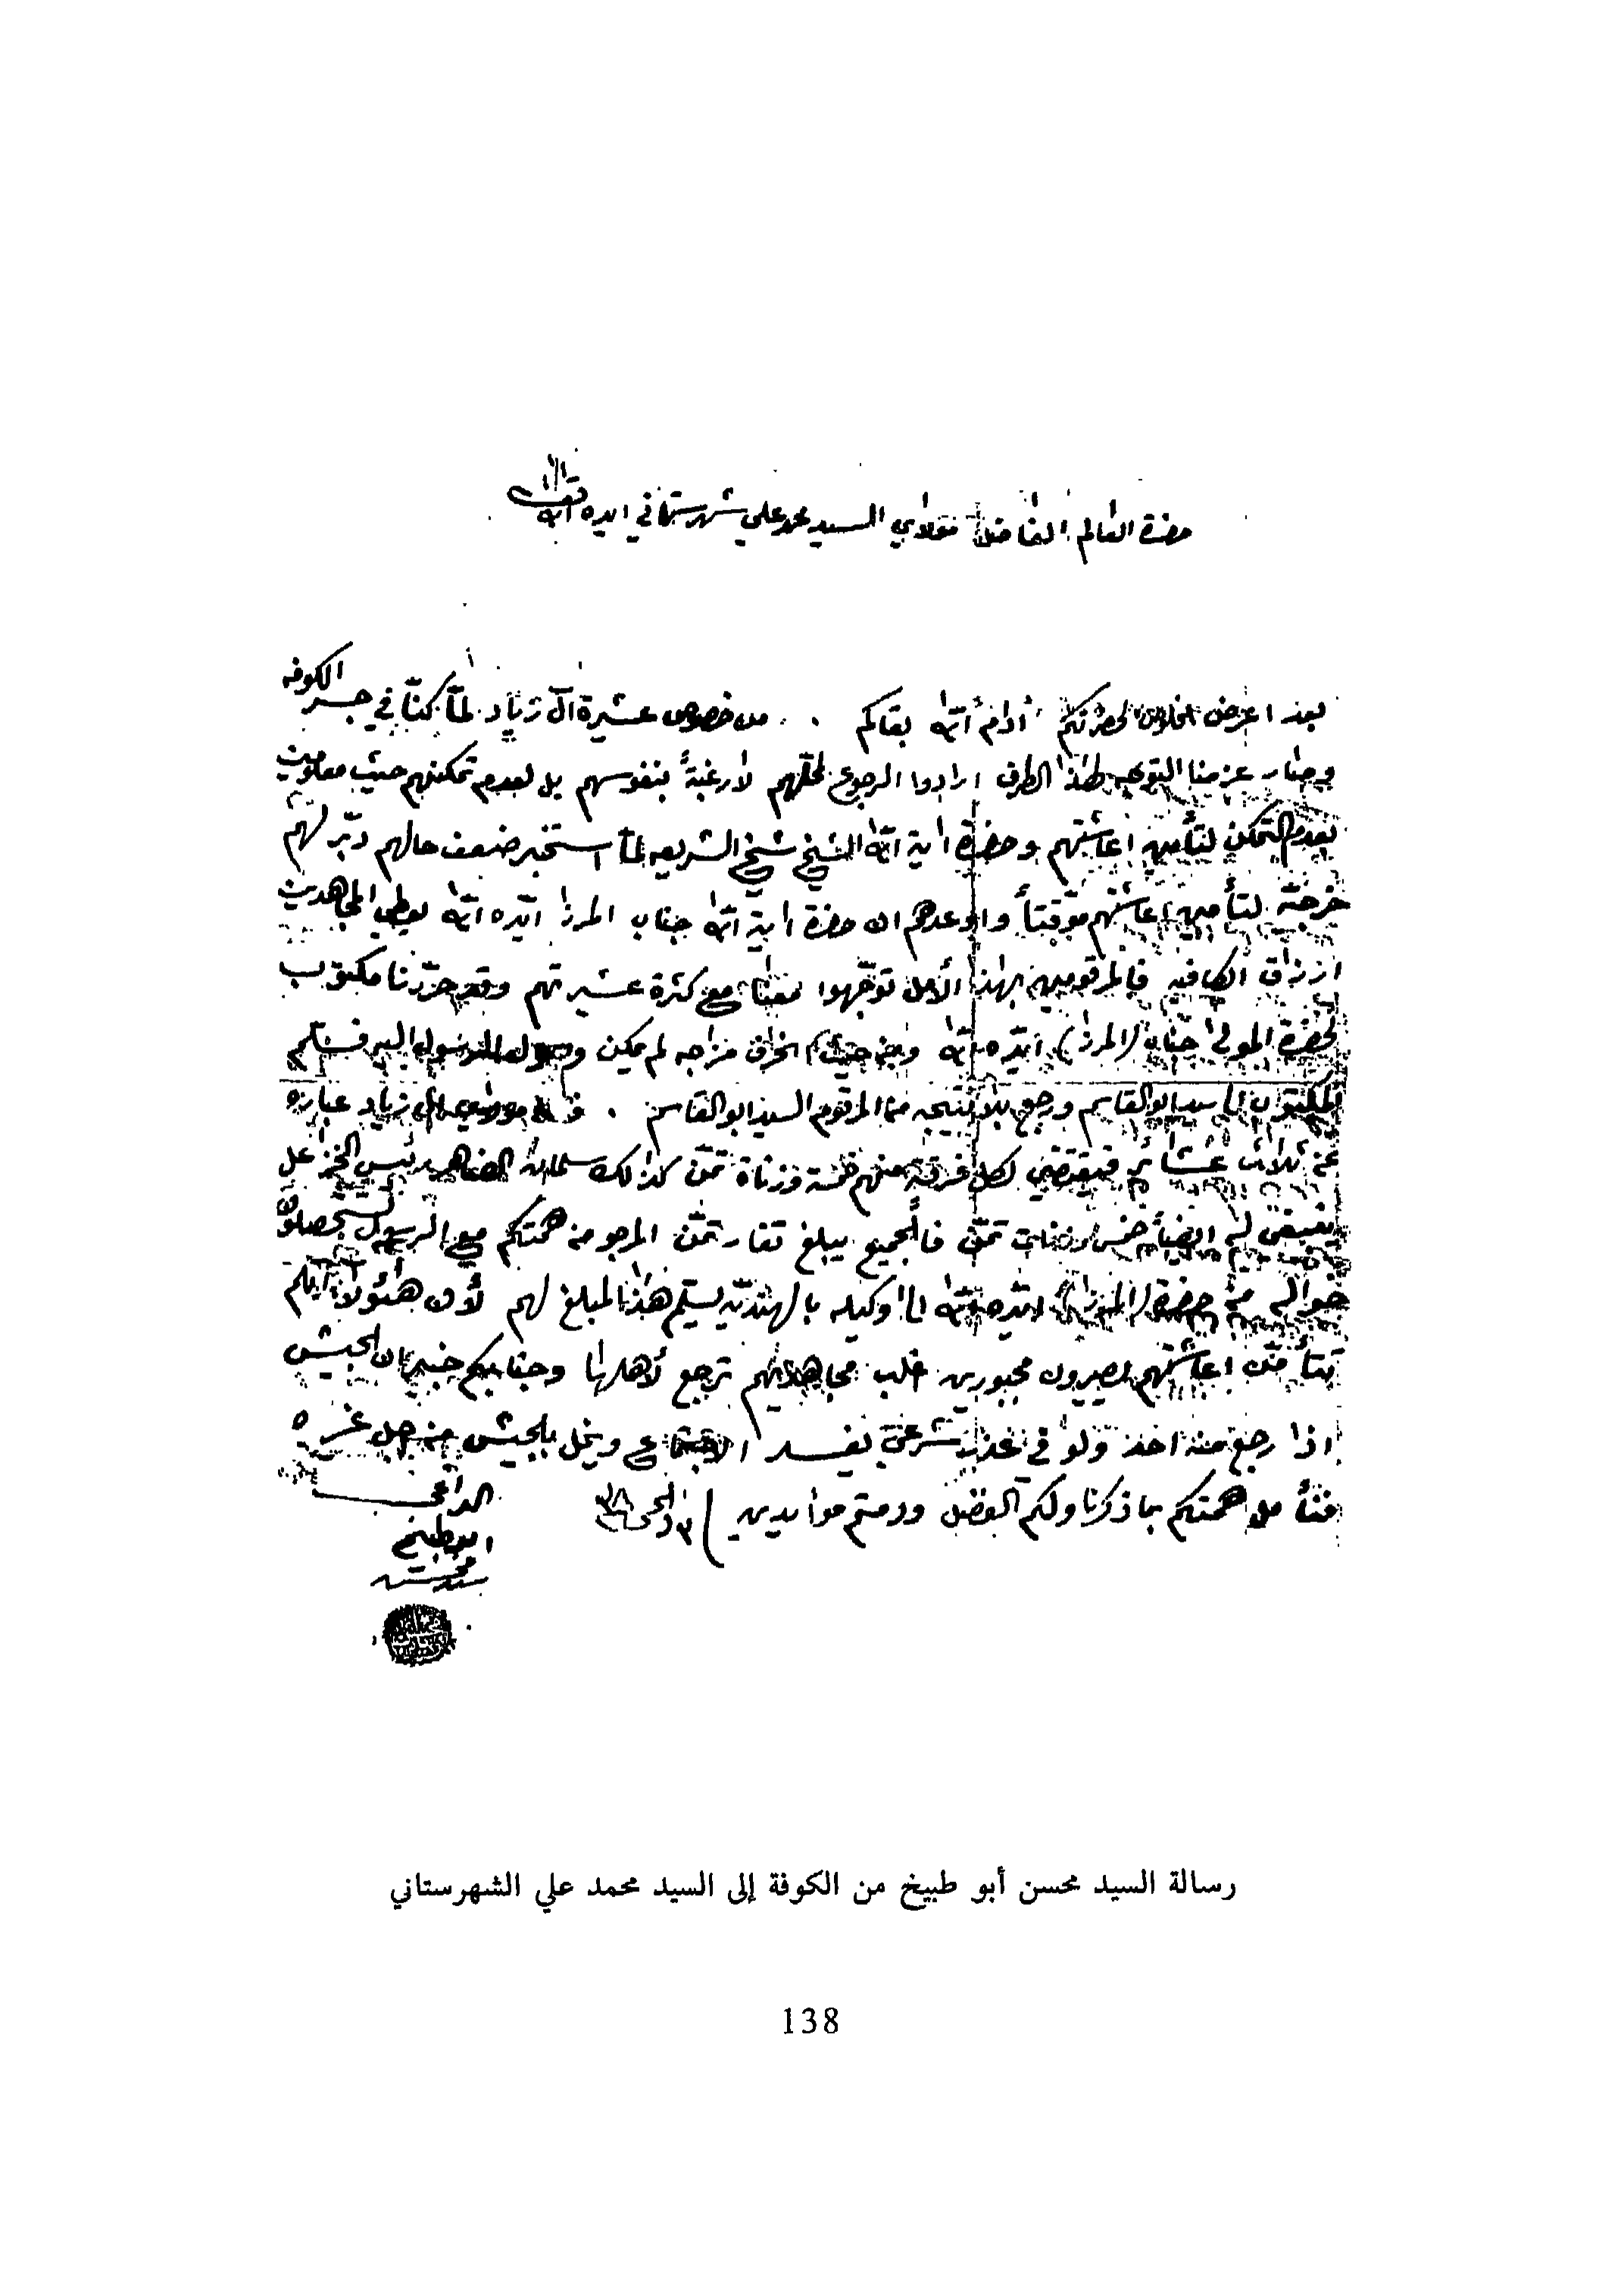 حضرة العالم الفاضل مولاي السيد محمد علي شهرستاني ايده الله تعالى
بعد اعرض اخلاص لحضرتكم أدام الله بقاكم . من خصوص عشيرة آل زياد لمّا كنّا في جسر الكوفه
وصار عزمنا التوجه لهذا الطرف ارادوا الرجوع لمحلّهم لا رغبةً بنفوسهم بل لعدم تمكنهم حيث معلومين
بعدم التمكن لتأمين اعاشتهم وحضرة اية الله الشيخ شيخ الشريعه لمّا استخبر ضعف حالهم دبّر لهم
خرجيّة لتأمين اعاشتهم موقتاً واوعدهم ان حضرة اية الله جناب المرزا ايّده الله يعطي المجاهدين
ارزاق الكافيه فالمرقومين بهذا الأمل توجّهوا معنا مع كثرة عشيرتهم وقد حرّرنا مكتوب
لحضرة المولى جناب (المرزا) ايّده الله ومن حيث انحراف مزاجه لم يمكن وصول الرسول اليه فسلّم
المكتوب الى سيد ابو القاسم ورجع بلا نتيجه من المرقوم السيد ابو القاسم . آل زياد عباره
عن ثلاث عشائر فيقتضي لكل فرقة منهم خمسة وزناة تمّن كذالك سلمان رئيس الخزاعل
له ايضاً خمس وزنات تمّن فالجميع يبلغ تغار تمّن المرجو من همتكم مع الرسول
حواله من حضرة (المرزا) ايّده الله الى وكيله بالهنديّه يسلّم هذا المبلغ لهم لأن هؤلاء اذا لم
تتأمّن اعاشتهم يصيرون مجبورين اغلب مجاهديهم ترجع لأهلها وجنابكم خبير ان الجيش
اذا رجع منه احد ولو في عذر شرعي يفسد الاجتماع ويخل بالجيش من
فنأمل همتكم بما ذكرنا ولكم الفضل ودمتم موايدين
الداعي
ابو طبيخ
سيد محسن
رسالة السيد محسن أبو طبيخ من الكوفة إلى السيد محمد علي الشهرستاني
138